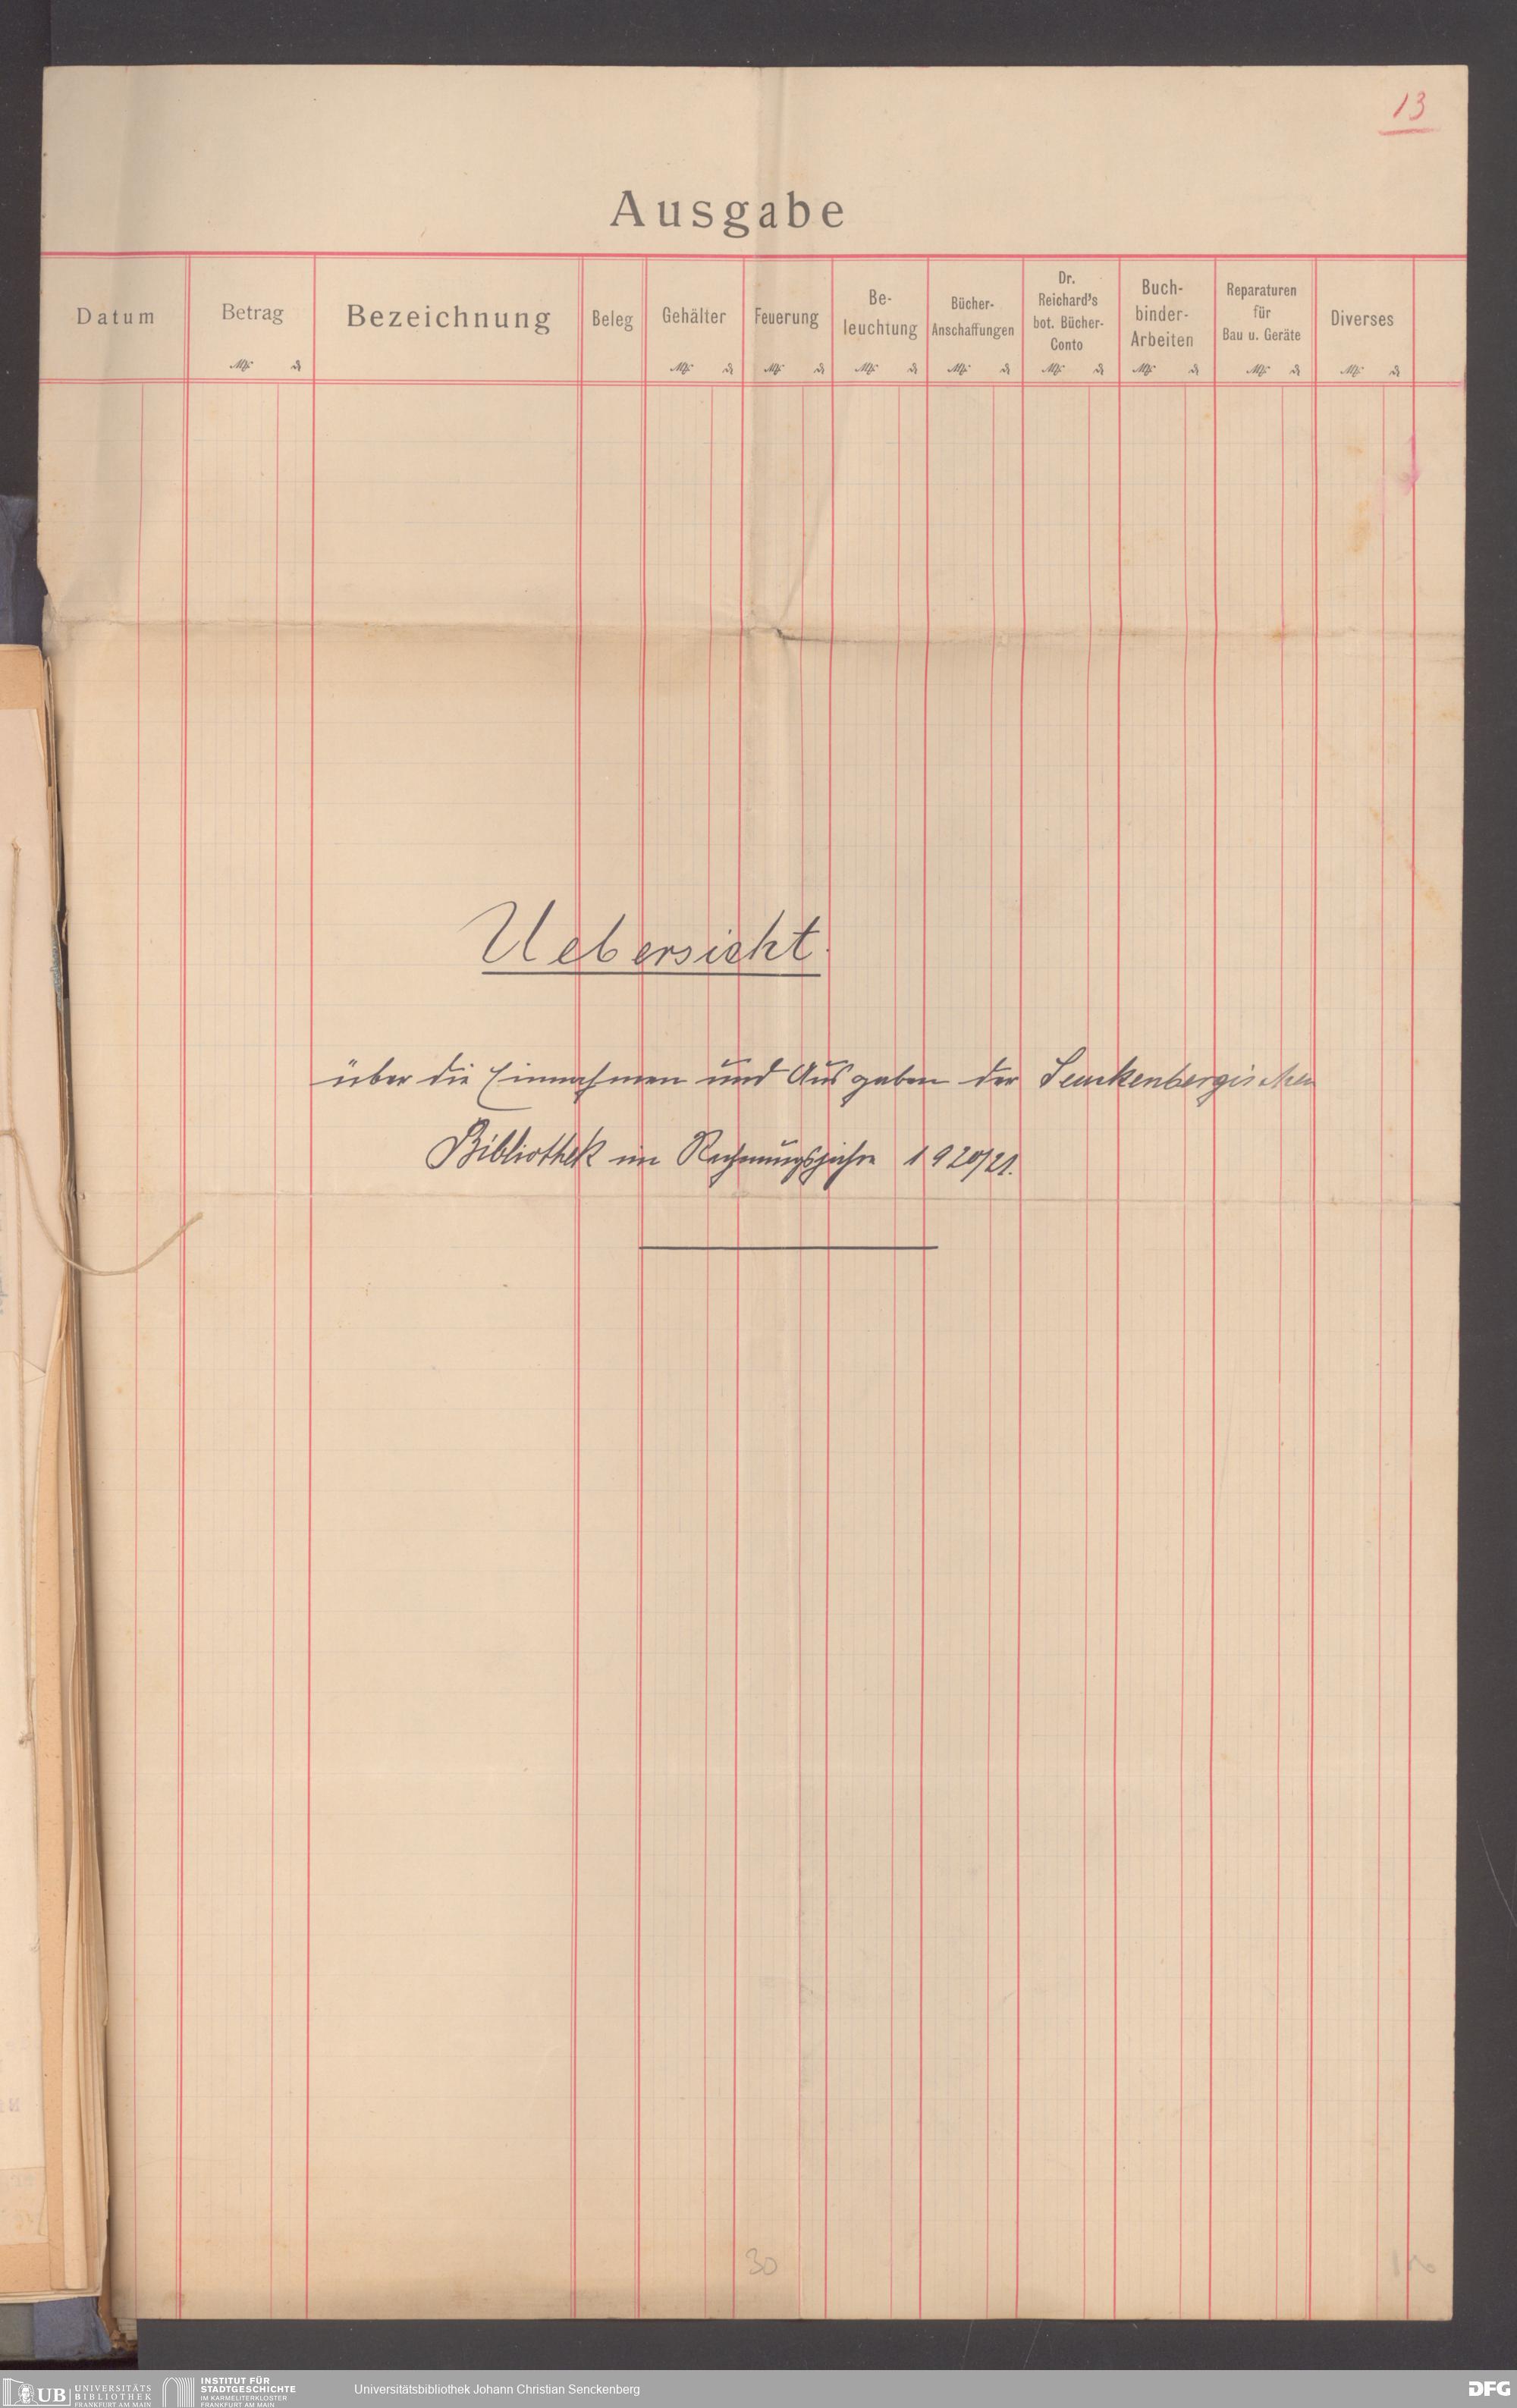 13
Ausgabe
Datum
Betrag
Bezeichnung
Beleg
Gehälter
Feuerung
Be-
leuchtung
Bücher-
Anschaffungen
Dr.
Reichard's
bot. Bücher-
Conto
Buch-
binder-
Arbeiten
Reparaturen
für
Bau u. Geräte
Diverses
Uebersicht.
über die Einnahmen und Ausgaben der Senckenbergischen
Bibliothek im Rechnungsjahre 1920/21.
30
UB UNIVERSITÄTS
BIBLIOTHEK
FRANKFURT AM MAIN
INSTITUT FÜR
STADTGESCHICHTE
IM KARMELITERKLOSTER
FRANKFURT AM MAIN
Universitätsbibliothek Johann Christian Senckenberg
DFG